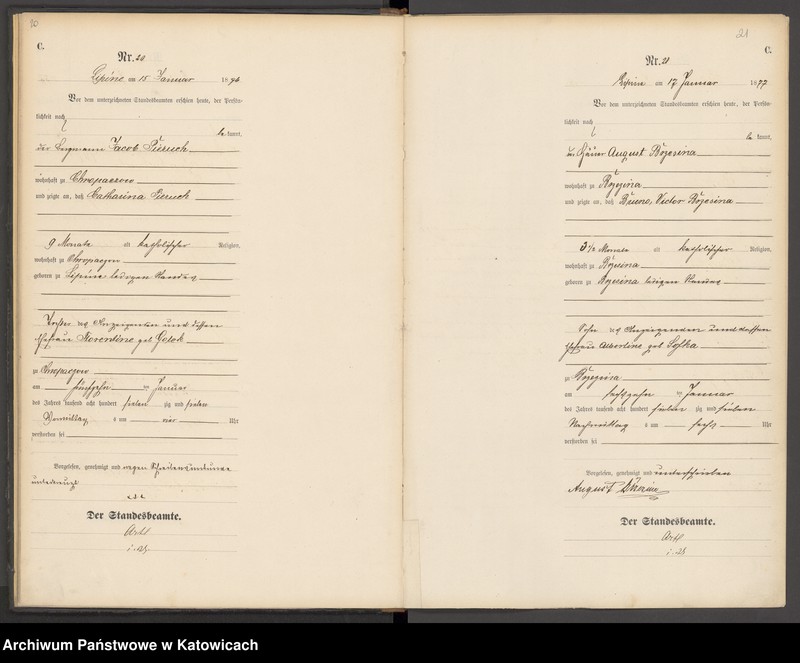 20
C.
Nr. 20
Lipine am 15 Januar 18
Vor dem unterzeichneten Standesbeamten erschien heute, der Persön-
lichkeit nach
be kannt,
der Jacob Pieruch
wohnhaft zu Chropaczow
und zeigte an, daß Catharina Pieruch
9 Monate alt katholischer Religion,
wohnhaft zu Chropaczow
geboren zu Lipine ledigen Standes
Tochter des Anzeigenden und dessen
Ehefrau Florentine geb
zu Chropaczow
am fünfzehn ten Januar
des Jahres tausend acht hundert sieben zig und sieben
Vormittag s um vier Uhr
verstorben sei
Vorgelesen, genehmigt und wegen Schreibensunkunde
unterkreuzt
xxx
Der Standesbeamte.
21
C.
Nr. 21
Lipine am 17 Januar 1877
Vor dem unterzeichneten Standesbeamten erschien heute, der Persön-
lichkeit nach
be kannt,
der Häuer August Brzesina
wohnhaft zu
und zeigte an, daß Bruno, Victor Brzesina
3½ Monate alt katholischer Religion,
wohnhaft zu
geboren zu ledigen Standes
Sohn des Anzeigenden und dessen
Ehefrau Albertine geb
zu
am sechszehn ten Januar
des Jahres tausend acht hundert sieben zig und sieben
Nachmittag s um sechs Uhr
verstorben sei
Vorgelesen, genehmigt und unterschrieben
August
Der Standesbeamte.
Archiwum Państwowe w Katowicach